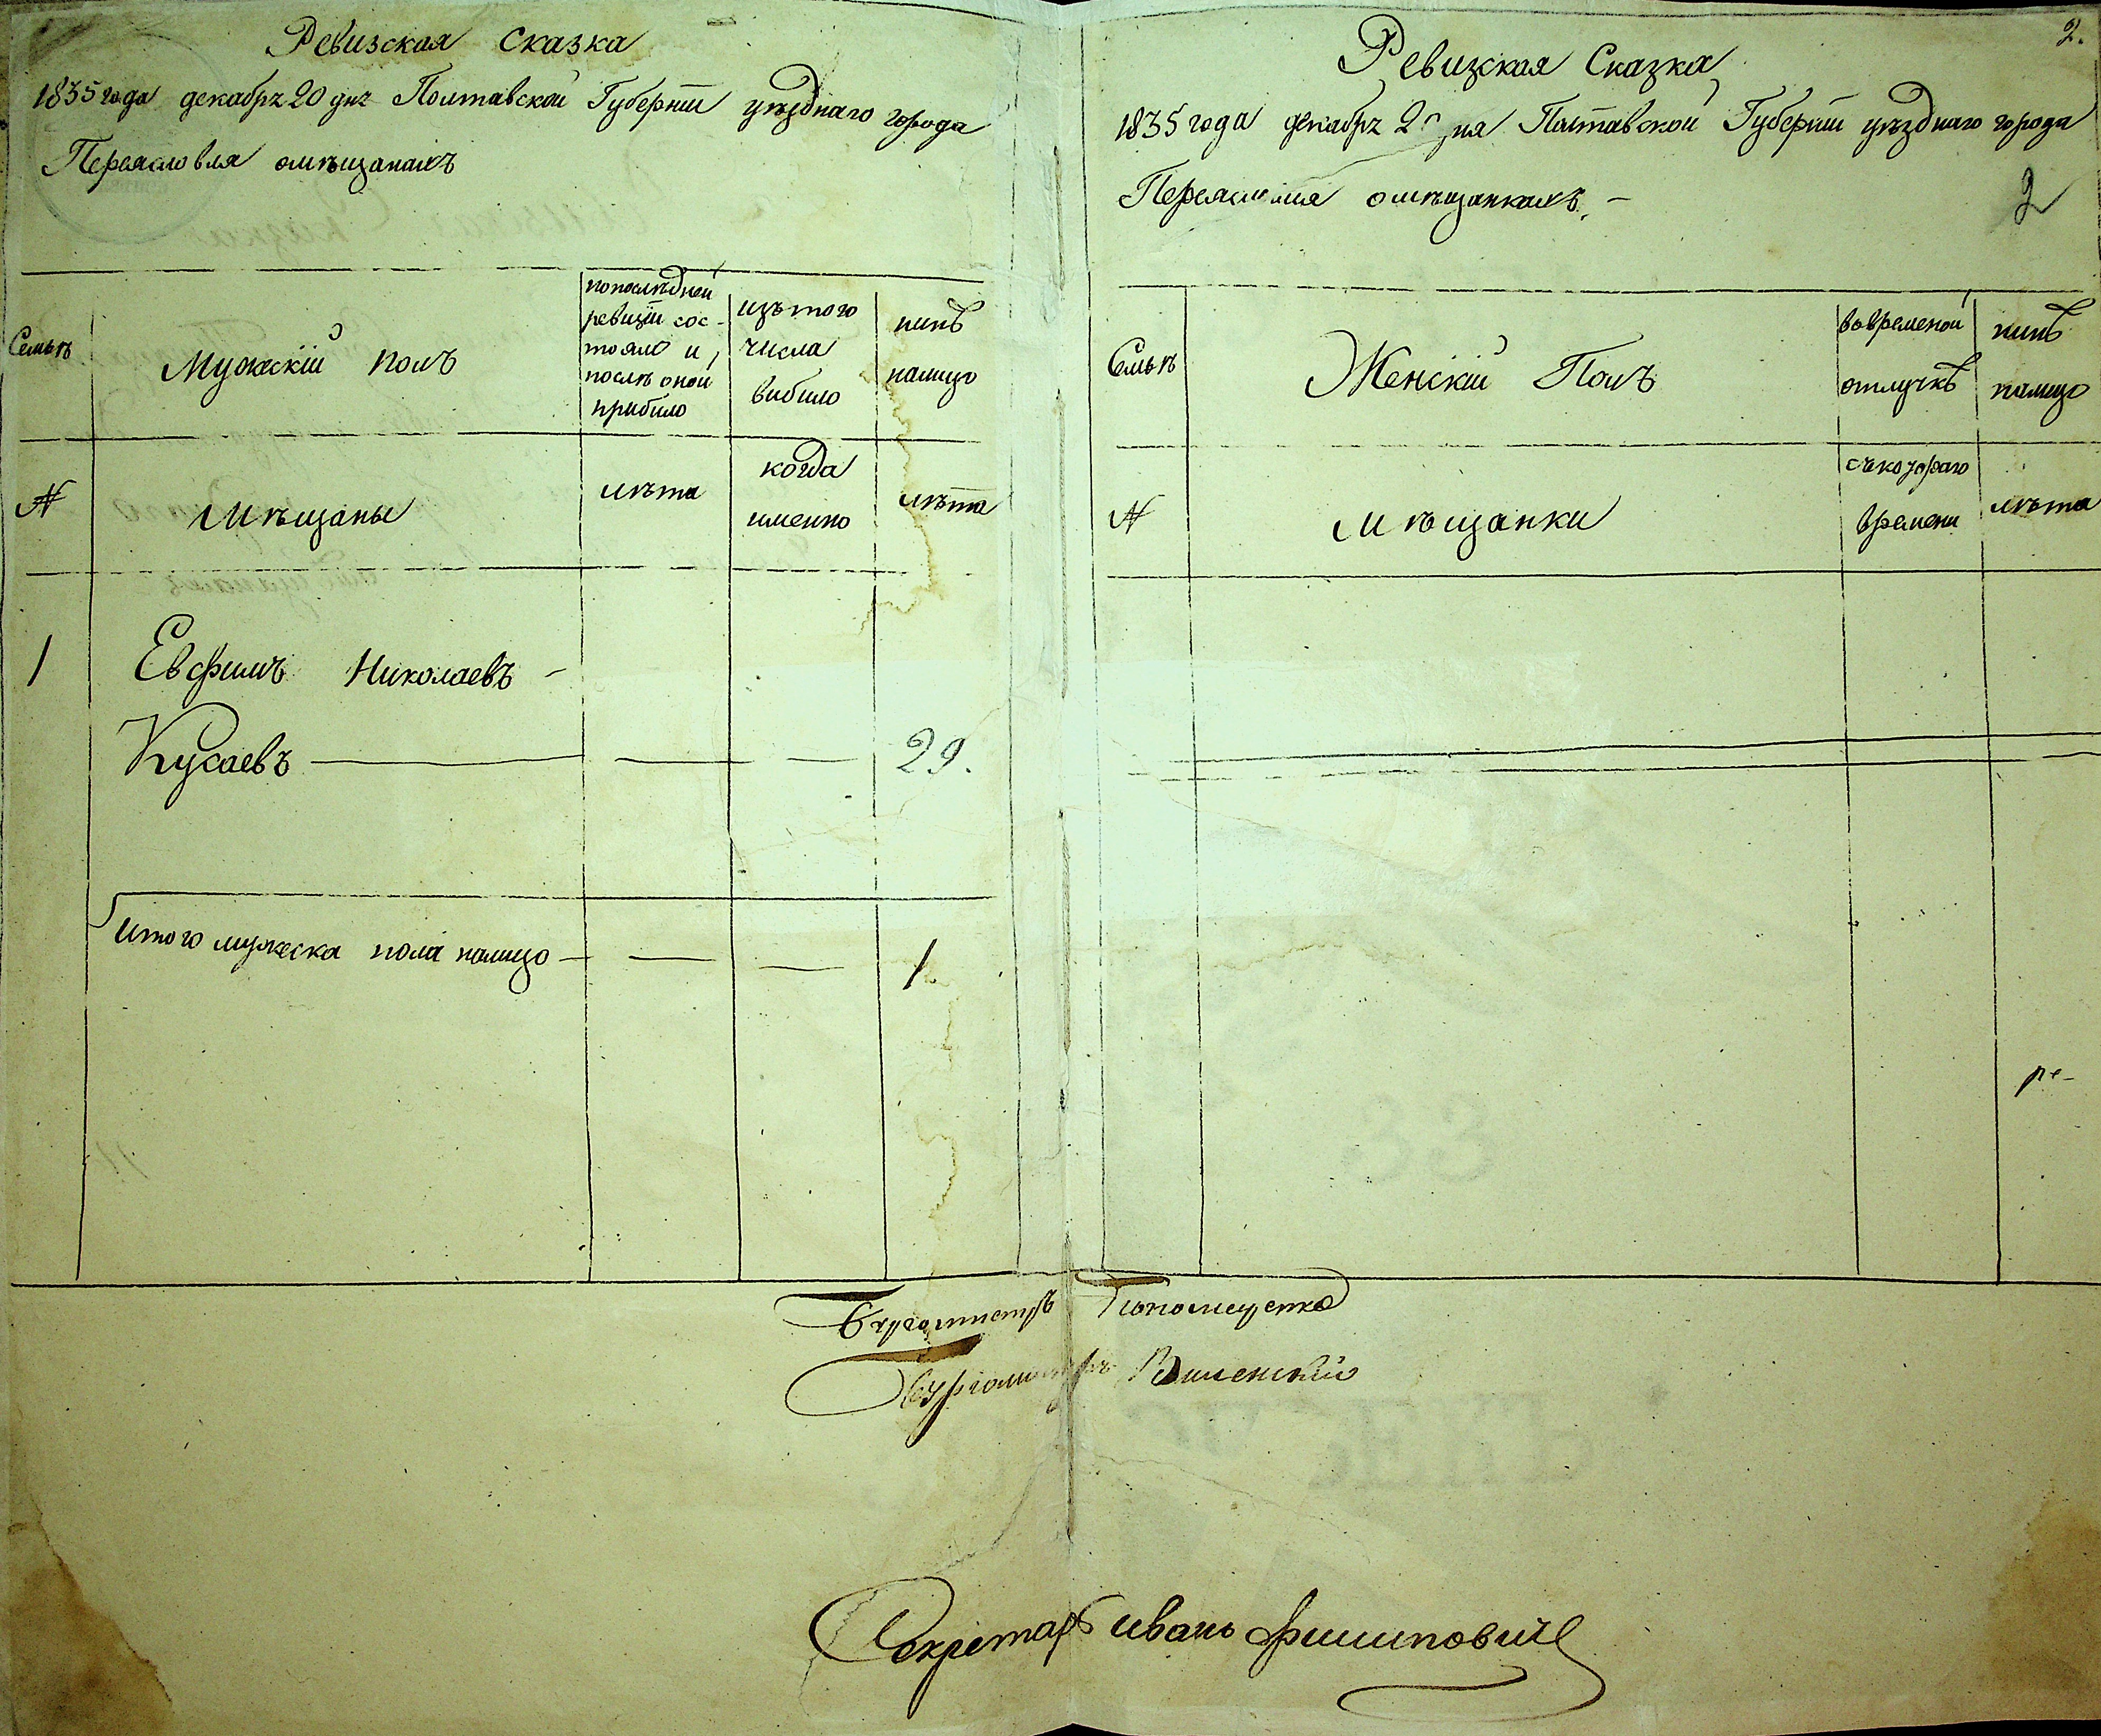 Ревизская Сказка
1835 года декабря 20 дня Полтавской Губернїи уѣзднаго города
Переясловля омѣщанахъ
Семьѣ
Мужскїй полъ
попослѣдней
ревизїи сос-
тояло и
послѣ оной
прибило
изътого
числа
вибило
нинѣ
налицо
№
Мѣщаны
лѣта
когда
именно
лѣта
1
Евфимъ Николаевъ -
Кусаевъ
29.
Итого мужеска пола налицо
1
2.
Ревизская Сказка
1835 года декабря 20 дня Полтавской Губернїи уѣзднаго города
Переясловля омѣщанкахъ. -
2
Семьѣ
Женскїй Полъ
вовременой
отлучкѣ
нинѣ
налицо
№
Мѣщанки
съкотораго
времени
лѣта
ре-
Бургомистръ
Бургомистръ Виленскїй
Секретарь Иванъ Филиповичъ